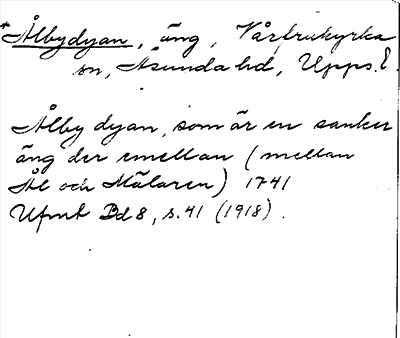 *Ålbydyan, äng, Vårfrukyrka
sn, Åsunda hd, Upps. l.
Ålby dyan, som är en sanker
äng der emellan (mellan
Ål och Mälaren) 1741
Ufmt Bd 8, s. 41 (1918).